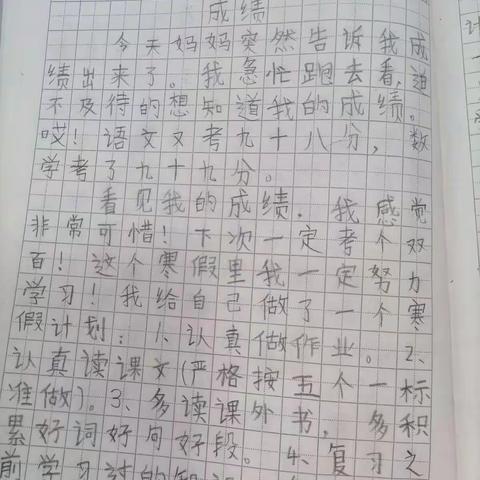 成绩
今天妈妈突然告诉我成
绩出来了。我急忙跑去看,迫
不及待的想知道我的成绩。
哎!语文又考九十八分,数
学考了九十九分。
看见我的成绩.我感觉
非常可惜!下次一定考个双
百!这个寒假里我一定努力
学习!我给自己做了一个寒
假计划:1、认真做作业。2、
认真读课文(严格按五个一标
准做)。3、多读课外书,多积
累好词好句好段。4、复习之
前学习过的知识